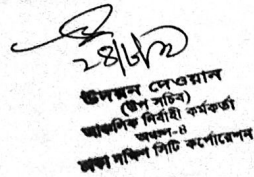 ২৪/৮/২২
উদয়ন দেওয়ান
(উপ সচিব)
আঞ্চলিক নির্বাহী কর্মকর্তা
অঞ্চল-৪
ঢাকা দক্ষিণ সিটি কর্পোরেশন